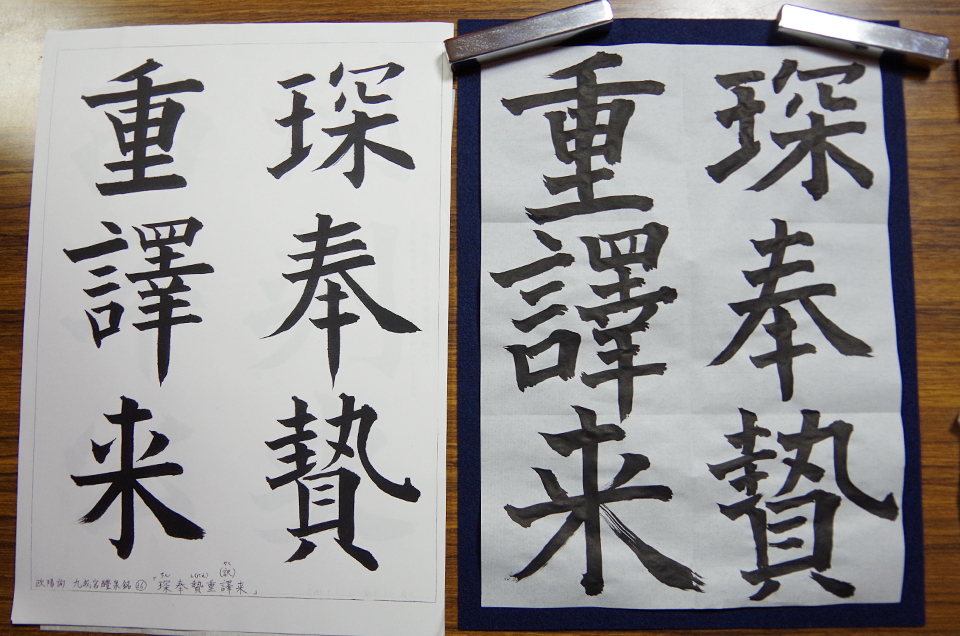 琛奉贄
重譯来
欧陽詢 九成宮醴泉銘⑯ 「琛奉贄重譯来」
琛奉贄
重譯来